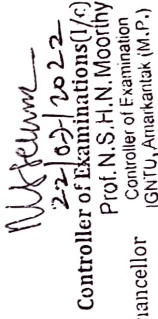 22/02/2022
Controller of Examinations(I/c)
Prof. N.S.H.N. Moorthy
Controller of Examination
IGNTU, Amarkantak (M.P.)
hancellor